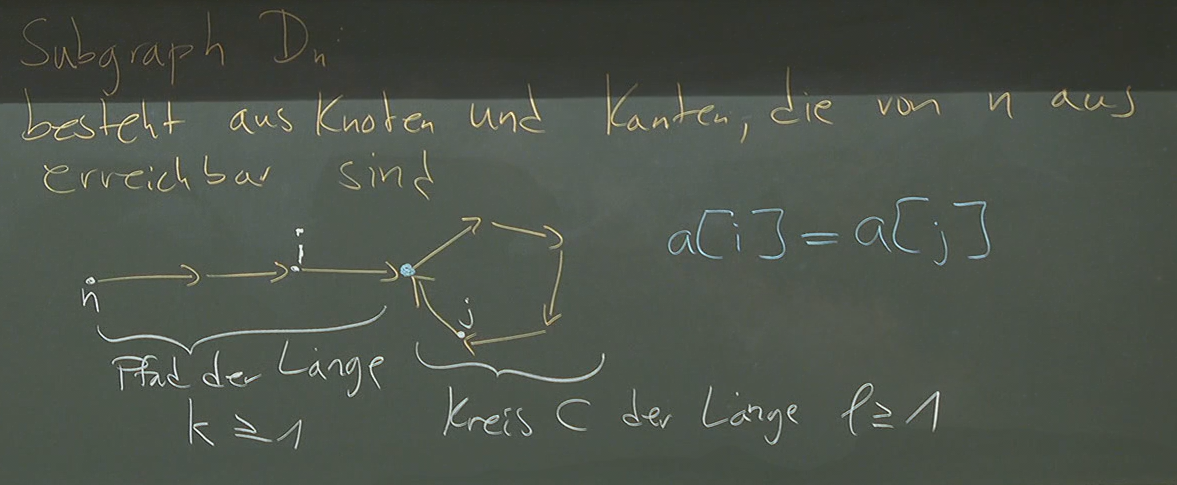 Subgraph Dn:
besteht aus Knoten und Kanten, die von n aus
erreichbar sind
a[i] = a[j]
i
n
j
Pfad der Länge
k ≥ 1
Kreis C der Länge ℓ ≥ 1